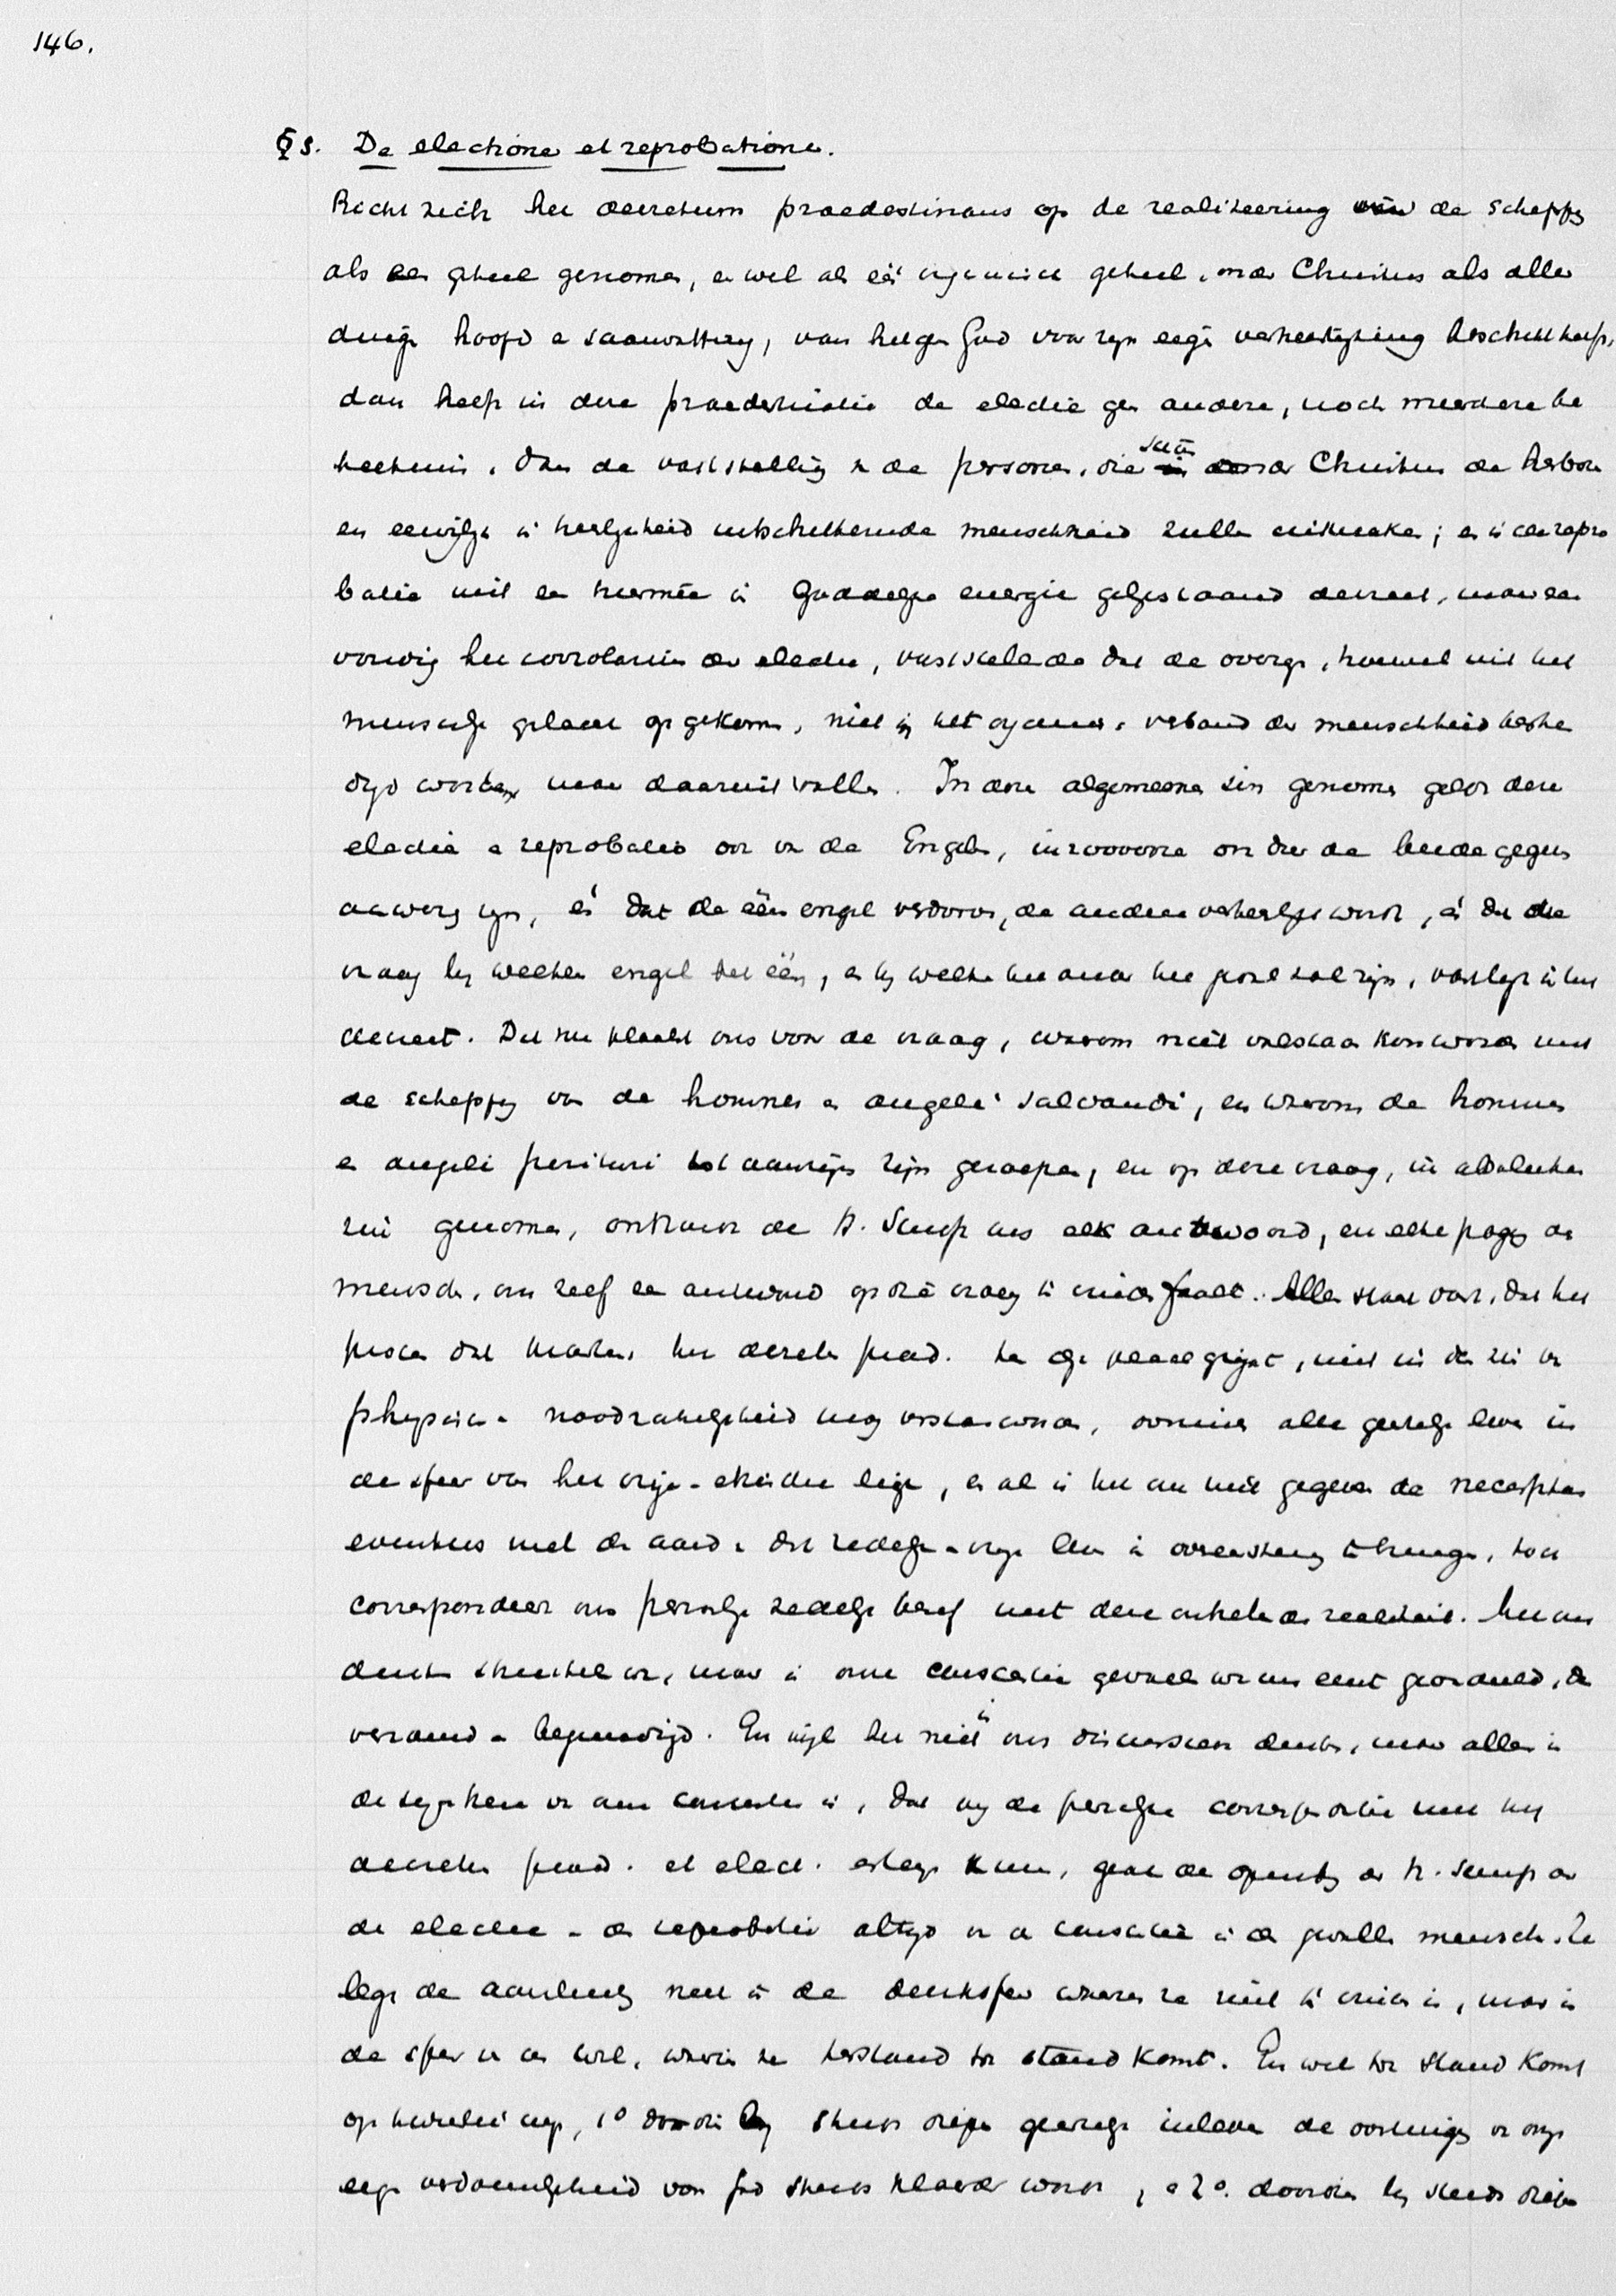 146.
§ 3. De electione et reprobatione.
Richt zich het decretum praedestinans op de realiseering van de schepping
als een geheel genomen, en wel als één organisch geheel, onder Christus als aller
dingen hoofd en saamvatting, van hetgeen God voor zijn eigen verheerlijking besteld heeft,
dan heeft in deze praedestinatie de electie geen andere, noch meerdere be
teekenis, dan de vaststelling van de personen, die saam onder Christus de herboren
en eeuwiglijk in heerlijkheid uitschitterende menschheid zullen uitmaken; en is de repro
batie niet een hiermeê in Goddelijke energie gelijkstaand decreet, maar een
voudig het corrolarium der electie, vaststellende dat de overigen, hoewel uit het
menschelijk geslacht opgekomen, niet in het organisch verband der menschheid besten
digd worden maar daaruit vallen. In deze algemeene zin genomen geldt deze
electie en reprobatie ook van de Engelen, in zooverre ook hier de beide gegevens
aanwezig zijn, én dat de één engel verdorven, de andere verheerlijkt wordt, én dat de
vraag bij welken engel het één, en bij welke het ander het geval zal zijn, vastligt in het
decreet. Dit nu plaatst ons voor de vraag, waarom niet volstaan kon worden met
de schepping van de homines en angeli salvandi, en waarom de homines
en angeli perituri tot aanzijn zijn geroepen, en op deze vraag, in absoluten
zin genomen, onthoudt de H. Schrift ons elk antwoord, en elke poging des
menschen, om zelf een antwoord op die vraag te vinden faalt. Alleen staat vast, dat het
proces dat krachtens het decretum praed. te plaats grijpt, niet in den zin van
physische noodzakelijkheid mag verstaan worden, overmits alle geestelijk leven in
de sfeer van het vrije-ethische ligt, en al is het ons niet gegeven de
eventus met den aard van dat zedelijk-vrije leven in overeenstemming te brengen, toch
correspondeert ons persoonlijk zedelijk besef met deze
denken stuit hier, maar in onze conscientie gevoelen we ons eerst geoordeeld, dan
verzoend en begenadigd. En wijl het niet in ons discursieve denken, maar alleen in
de van onze conscientie is, dat wij de persoonlijke correspondentie met het
decretum praed. et elect. erlangen kunnen, gaat de openbaring der H. Schrift over
de electie en de reprobatie altijd van de conscientie in den gevallen mensch. Ze
legt de aansluiting niet in de denksfeer waarin ze niet te vinden is, maar in
de sfeer van den wil, waarin ze tot stand komt. En wel tot stand komt
op tweeërlei wijze, 1º doordien bij steeds dieper geestelijk inleven de oorsprong van onze
eigen verdoemelijkheid voor God steeds klaarder wordt, en 2º. doordien bij steeds dieper